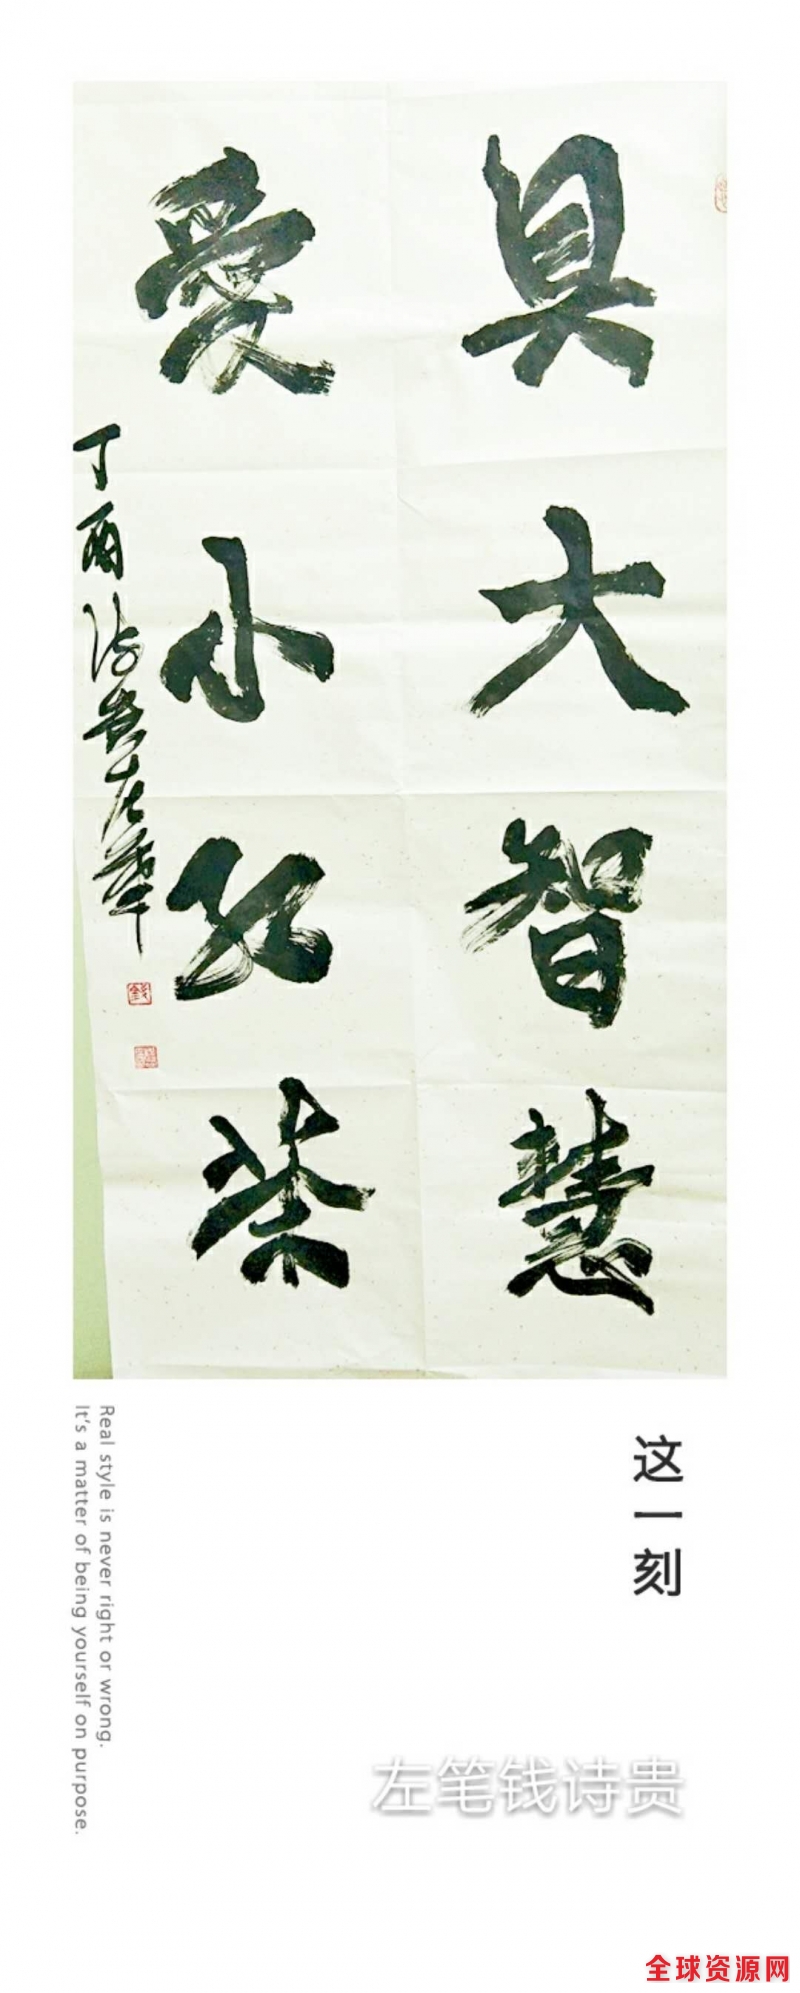 具大智慧
愛小
丁酉诗贵左筆
这一刻
Real style is never right or wrong.
It's a matter of being yourself on purpose.
左笔钱诗贵
全球资源网